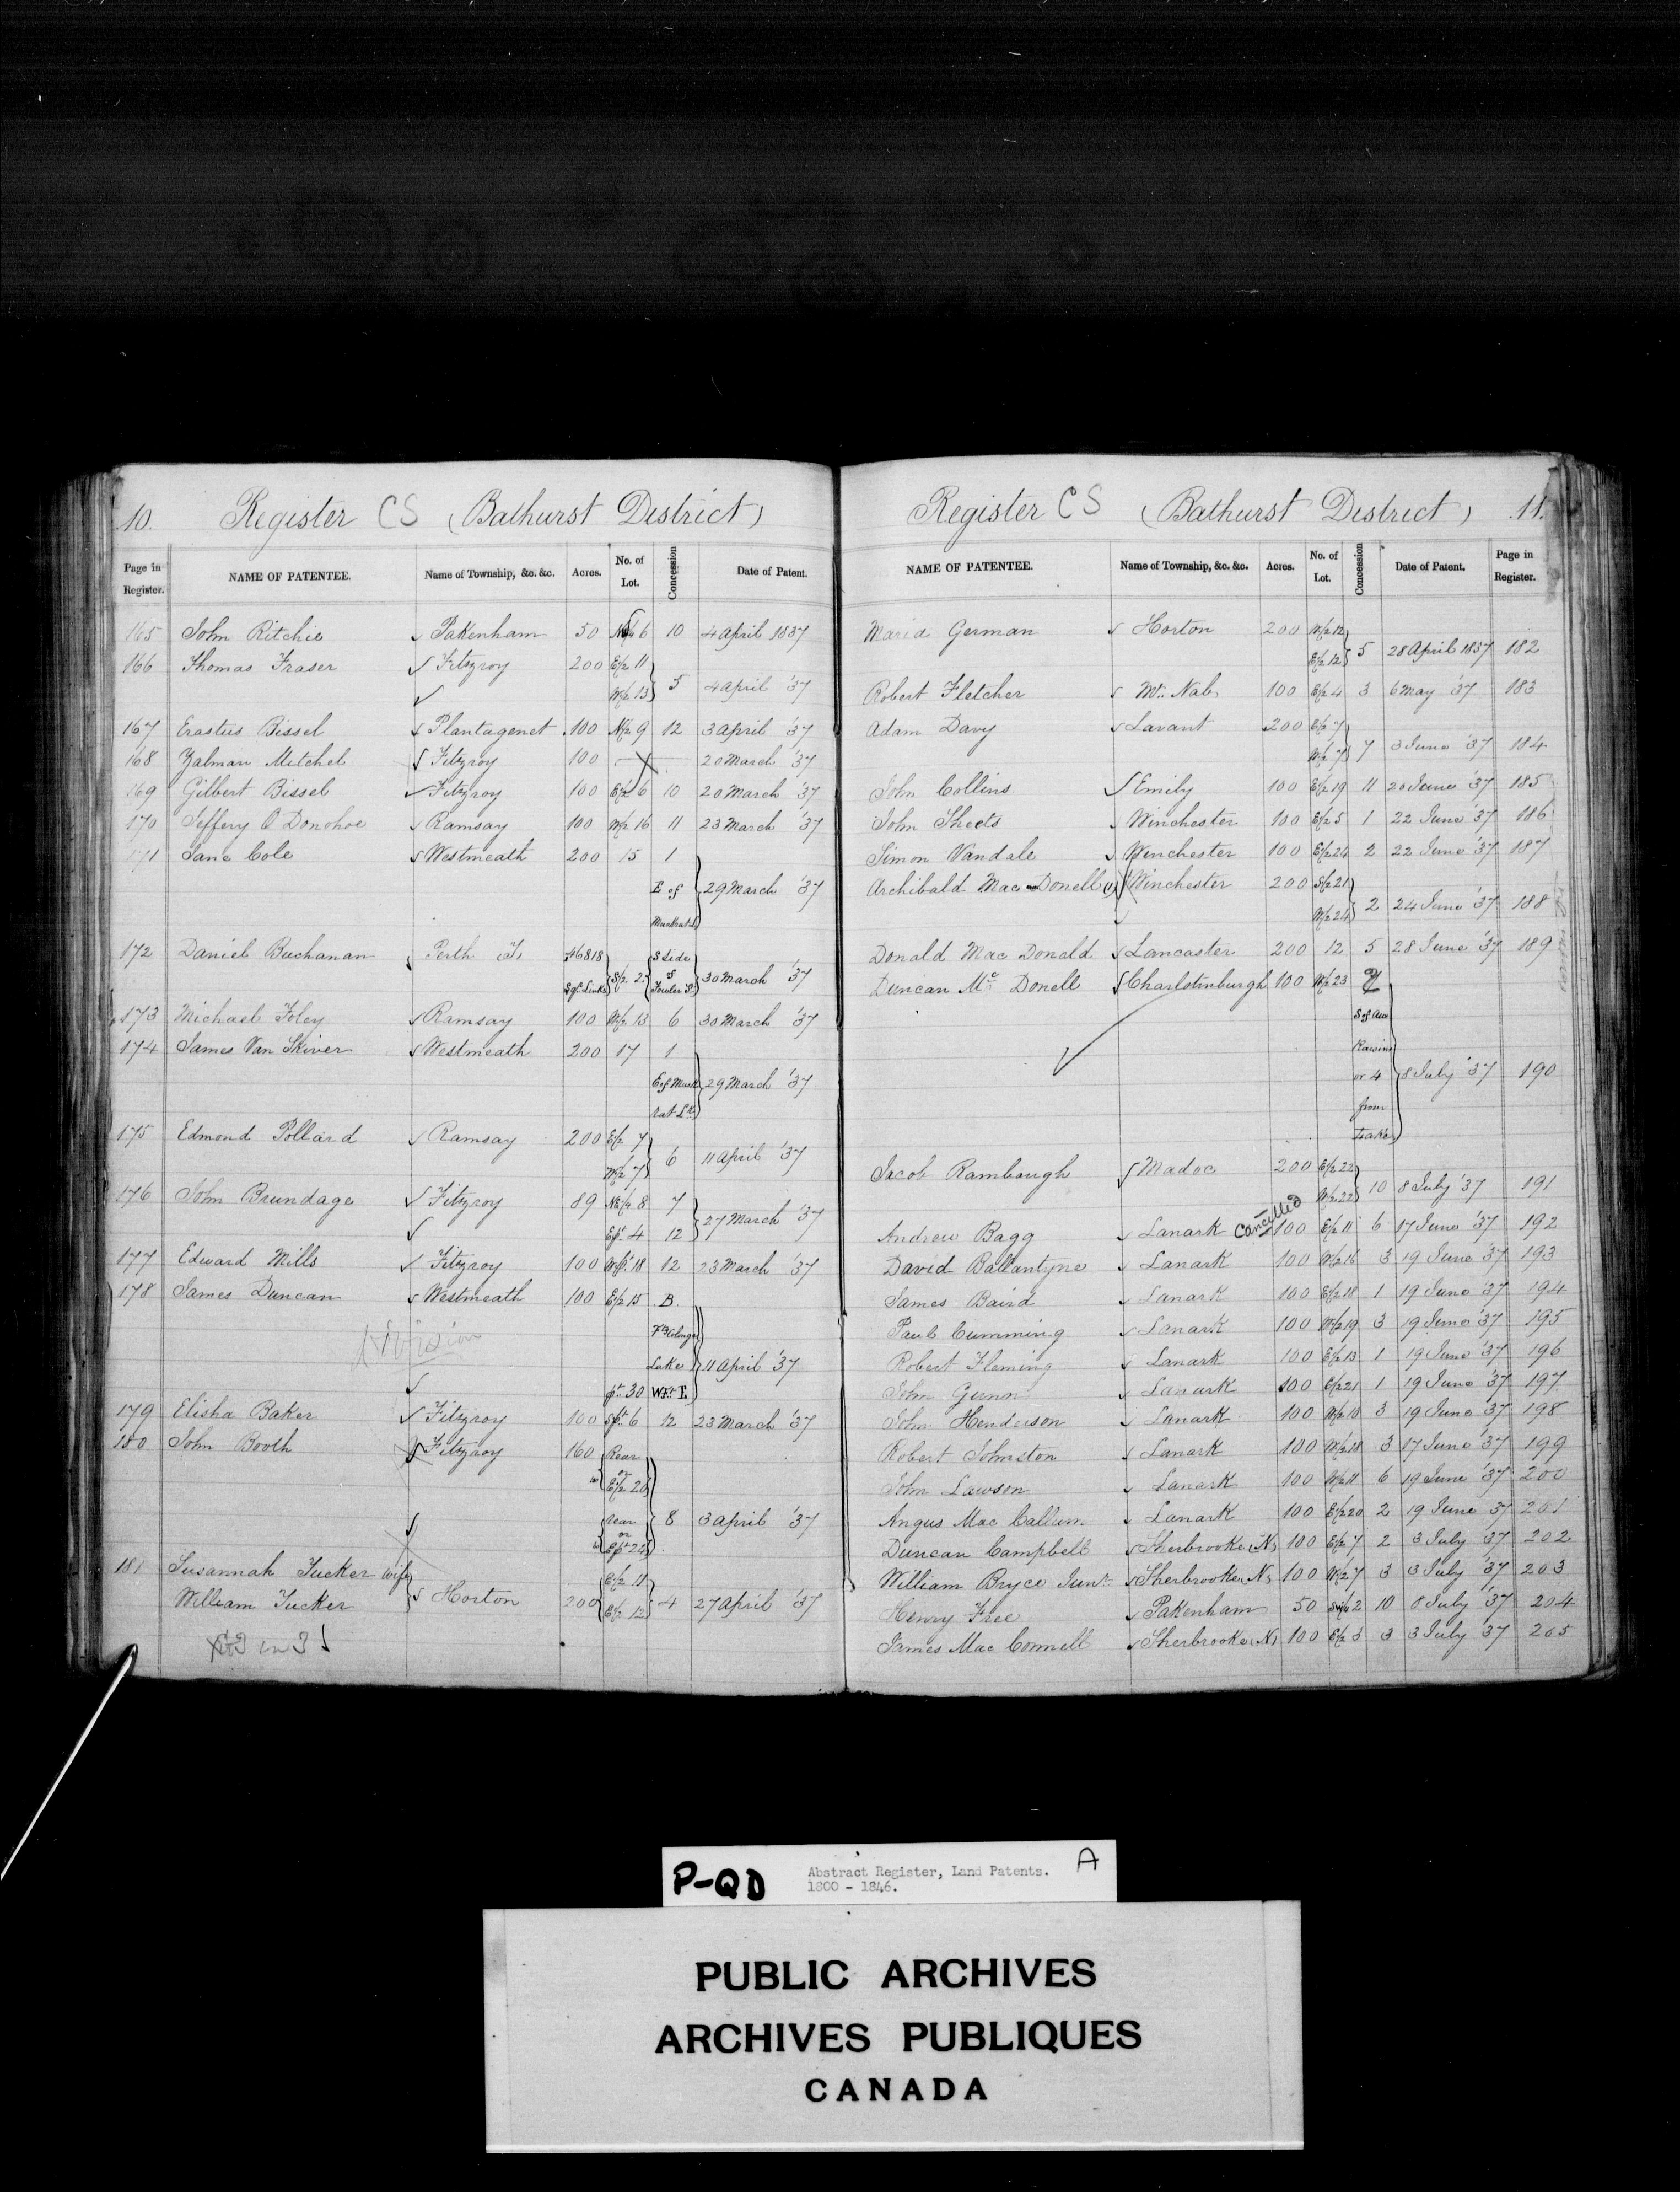 10. Register CS (Bathurst District)
Page in Register. NAME OF PATENTEE. Name of Township, &c. &c. Acres. No. of Lot. Concession Date of Patent.
165 John Ritchie Pakenham 50 6 10 4 April 1837
166 Thomas Fraser Fitzroy 200 E½ 11
W½ 13 5 4 April '37
167 Erastus Bissel Plantagenet 100 N½ 9 12 3 April '37
168 Zalman Mitchel Fitzroy 100 20 March '37
169 Gilbert Bissel Fitzroy 100 E½ 6 10 20 March '37
170 Jeffery O Donohoe Ramsay 100 W½ 16 11 23 March '37
171 Jane Cole Westmeath 200 15 1
E of 29 March '37
Muskrat L
172 Daniel Buchanan Perth T. 46818 S Side
Sqr Links S½ 2 of Foster St 30 March '37
173 Michael Foley Ramsay 100 W½ 13 6 30 March '37
174 James Van Skiver Westmeath 200 17 1
E of Musk 29 March '37
rat Lk
175 Edmond Pollard Ramsay 200 E½ 7
W½ 7 6 11 April '37
176 John Brundage Fitzroy 89 8 7
4 12 27 March '37
177 Edward Mills Fitzroy 100 18 12 23 March '37
178 James Duncan Westmeath 100 E½ 15 B.
Lake 11 April '37
pt 30
179 Elisha Baker Fitzroy 100 6 12 23 March '37
180 John Booth Fitzroy 160 Rear
or
E½ 20
rear 8 3 April '37
or
24
181 Susannah Tucker wife E½ 11
William Tucker Horton 200 E½ 12 4 27 April '37
Register CS (Bathurst District) 11.
NAME OF PATENTEE. Name of Township, &c. &c. Acres. No. of Lot. Concession Date of Patent. Page in Register.
Maria German Horton 200 W½ 12
E½ 12 5 28 April 1837 182
Robert Fletcher Mc Nab 100 E½ 4 3 6 May '37 183
Adam Davy Lavant 200 E½ 7
W½ 7 7 3 June '37 184
John Collins Emily 100 E½ 19 11 20 June '37 185
John Sheets Winchester 100 E½ 5 1 22 June '37 186
Simon Vandale Winchester 100 E½ 24 2 22 June '37 187
Archibald Mac Donell Winchester 200 S½ 21
W½ 24 2 24 June '37 188
Donald Mac Donald Lancaster 200 12 5 28 June '37 189
Duncan Mc Donell Charlottenburgh 100 W½ 23 2
S of Aux
Raisins
or 4 8 July '37 190
from
Lake
Jacob Rambough Madoc 200 E½ 22
W½ 22 10 8 July '37 191
Andrew Bagg Lanark Cancelled 100 E½ 11 6 17 June '37 192
David Ballantyne Lanark 100 W½ 16 3 19 June '37 193
James Baird Lanark 100 E½ 18 1 19 June '37 194
Paul Cumming Lanark 100 W½ 19 3 19 June '37 195
Robert Fleming Lanark 100 E½ 13 1 19 June '37 196
John Gunn Lanark 100 E½ 21 1 19 June '37 197
John Henderson Lanark 100 W½ 10 3 19 June '37 198
Robert Johnston Lanark 100 W½ 18 3 17 June '37 199
John Lawson Lanark 100 W½ 11 6 19 June '37 200
Angus Mac Callum Lanark 100 E½ 20 2 19 June 37 201
Duncan Campbell Sherbrooke (N) 100 E½ 7 2 3 July '37 202
William Bryce Junr Sherbrooke (N) 100 W½ 7 3 3 July '37 203
Henry Free Pakenham 50 2 10 8 July '37 204
James Mac Connell Sherbrooke (N) 100 E½ 3 3 3 July '37 205
P-QD Abstract Register, Land Patents. A
1800 - 1846.
PUBLIC ARCHIVES
ARCHIVES PUBLIQUES
CANADA